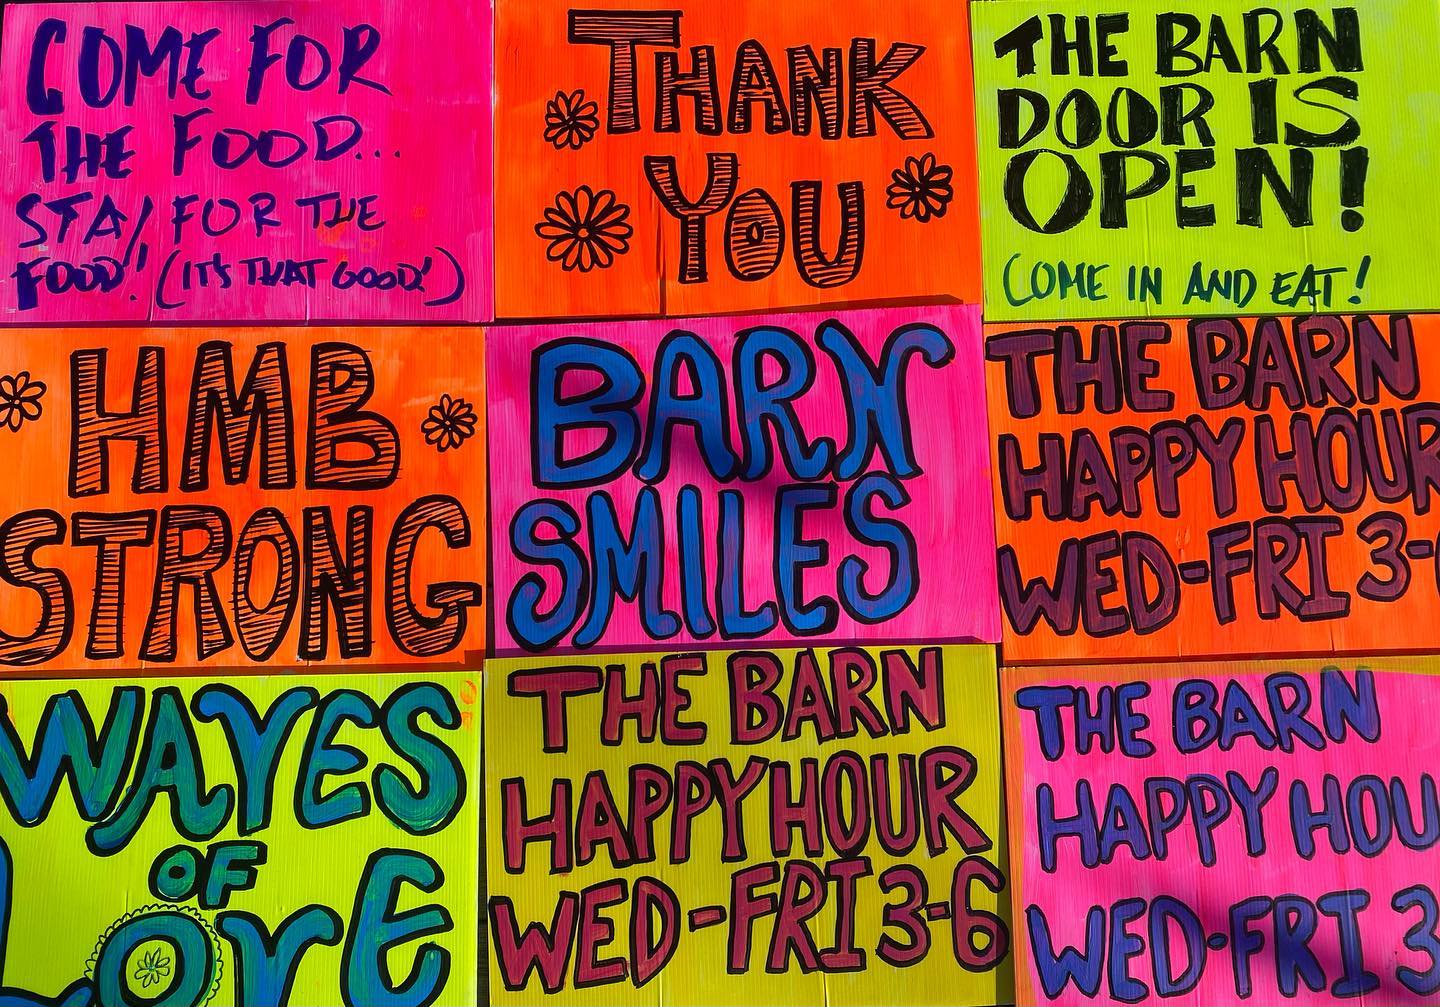 COME FOR
THE FOOD...
STAY FOR THE
FOOD! (IT'S THAT GOOD!)
THANK
YOU
THE BARN
DOOR IS
OPEN!
COME IN AND EAT!
HMB
STRONG
BARN
SMILES
THE BARN
HAPPY HOUR
WED-FRI 3-
WAVES
OF
LOVE
THE BARN
HAPPY HOUR
WED-FRI 3-6
THE BARN
HAPPY HOU
WED-FRI 3